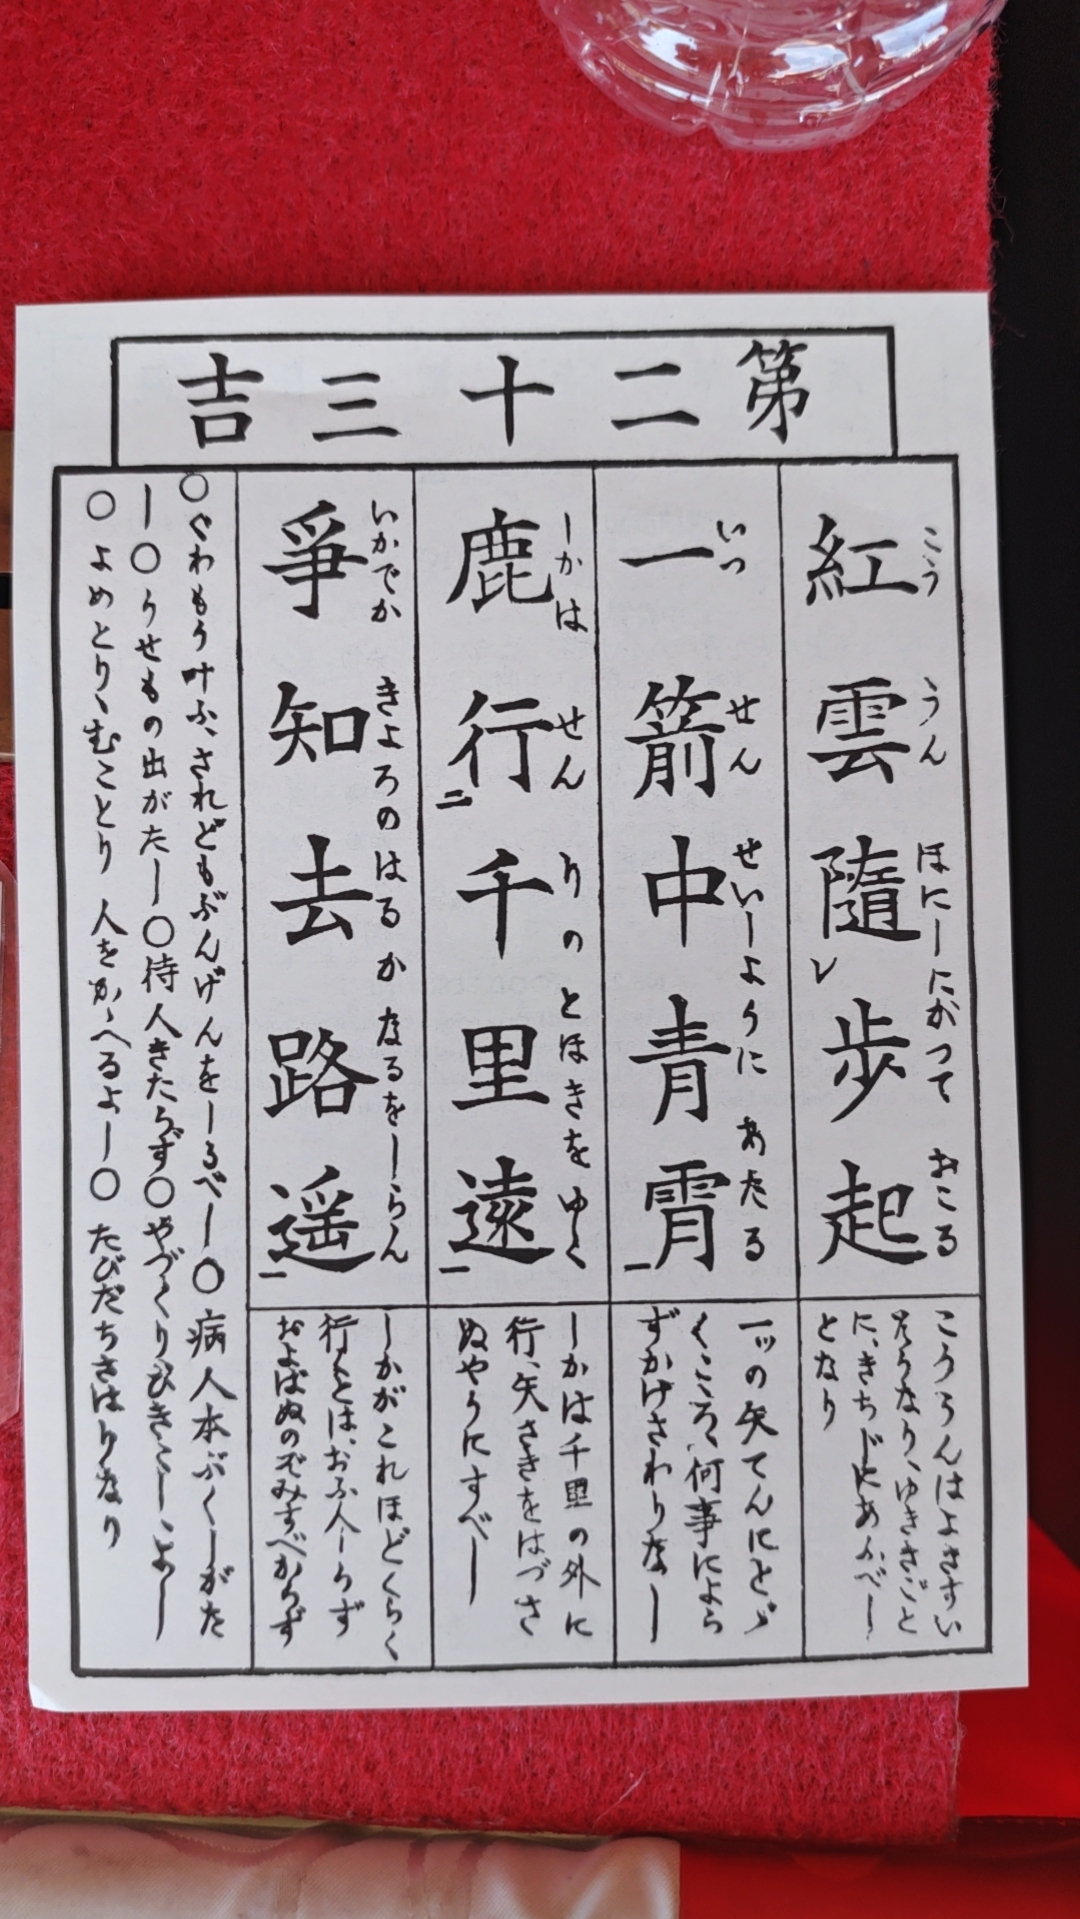 第二十三吉
紅雲隨歩起
こううんほにしたがつておこる
こううんはよきずい
そうなり、ゆきさきごと
に、きちじにあふべし
となり
一箭中青霄
いつせんせいしようにあたる
一ツの矢てんにとゞ
くこころ、何事によら
ずかけさわりなし
鹿行千里遠
しかはせんりのとほきをゆく
しかは千里の外に
行、矢さきをはづさ
ぬやうにすべし
爭知去路遥
いかでかきよろのはるかなるをしらん
しかがこれほどとくらく
行とは、おふ人しらず
およばぬのぞみすべからず
○ぐわもう叶ふ、されどもぶんげんをしるべし○病人本ぷくしがた
し○うせもの出がたし○待人きたらず○やづくりひきこしよし
○よめとり、むことり人をかゝへるよし○たびだちさはりなり